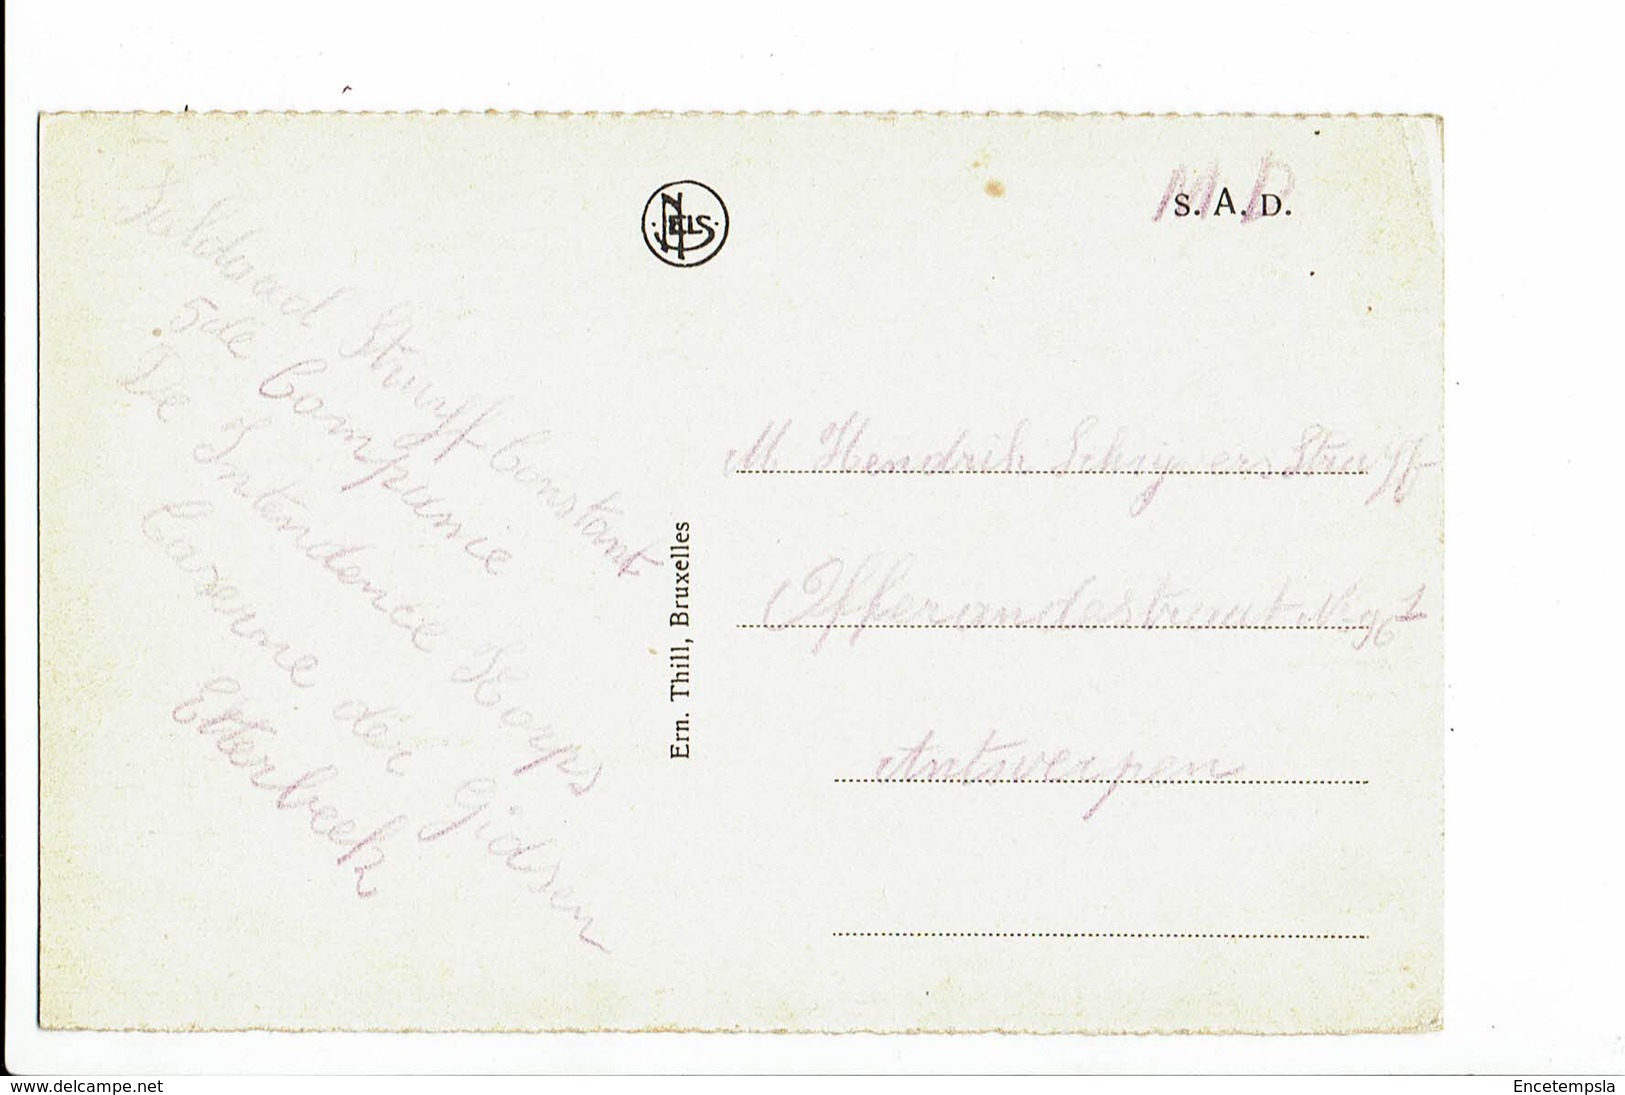 Soldaad Struyf Constant
5de Compunie
De Intendence Korps
Caserne der Gidsen
Etterbeek
NELS
Ern. Thill, Bruxelles
M B
S. A. D.
M Hendrik Schuypers Struyf
Offerandestraat No 96 1
Antwerpen
www.delcampe.net
Encetempsla